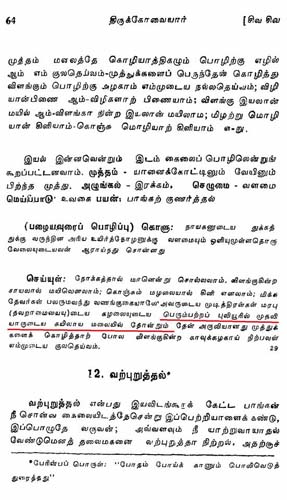 64
திருக்கோவையார்
[சிவ சிவ
முத்தம் மலைத்தே கொழியாத்திகழும் பொழிற்கு எழில்
ஆம் எம் குலதெய்வம்-முத்துக்களைப் பெருந்தேன் கொழித்து
விளங்கும் பொழிற்கு அழகாம் எம்முடைய நல்லதெய்வம்; விழி
யான்பிணை ஆம்-விழிகளாற் பிணையாம்; விளங்கு இயலான்
மயில் ஆம்-விளங்கா நின்ற இயலான் மயிலாம்; மிழற்று மொழி
யான் கிளியாம்-கொஞ்சு மொழியாற் கிளியாம் எ-று.
இயல் இன்னவென்றும் இடம் கைலைப் பொழிலென்றுங்
கூறப்பட்டனவாம். முத்தம் - யானைக்கோட்டினும் வேயினும்
பிறந்த முத்து. அழுங்கல் - இரக்கம், செழுமை - வளமை
மெய்ப்பாடு: உவகை பயன்: பாங்கற் குணர்த்தல்
(பழையவுரைப் பொழிப்பு) கொளு: நாயகனுடைய துக்கத்
துக்கு வருந்தின அரிய உயிர்த்தோழனுக்கு வளமையும் ஒளியுமுள்ளதொரு
வேலையுடையவன் ஆராய்ந்து சொன்னது
செய்யுள்: நோக்கத்தால் மானென்று சொல்லலாம். விளங்குகின்ற
சாயலால் மயிலெனலாம்; கொஞ்சும் மழலையால் கிளி எனலாம்; மிக்க
தேவர்கள் பலருமவந்து வணங்குகையாலே அவருடைய முடித்திரள்கள் மருவு
(தவறாமலையு)டைய கழலையுடைய பெரும்பற்றப் புலியூரில் முதலி
யாருடைய கயிலாய மலையில் தோன்றும் தேன் அருவியானது முத்துக்
களைக் கொழித்தாற் போல விளங்குகின்ற காவுக்கழகாய் நிற்பவள்
எம்முடைய குலதெய்வம்.
29
12. வற்புறுத்தல்*
வற்புறுத்தல் என்பது இயலிடங்கூறக் கேட்ட பாங்கன்
நீ சொன்ன கைலையிடத்தேசென்று இப்பெற்றியாளைக் கண்டு,
இப்பொழுதே வருவன்; அவ்வளவும் நீ யாற்றுவாயாதல்
வேண்டுமெனத் தலைமகனை வற்புறுத்தா நிற்றல். அதற்குச்
*பேரின்பப் பொருள்: "போதம் போய்க் காணும் பொலிவெடுத்
துரைத்தது"